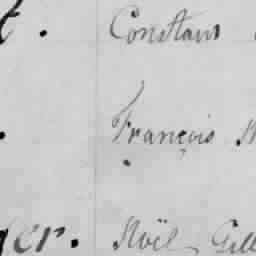 t. Constant
François
er. Noël Gill